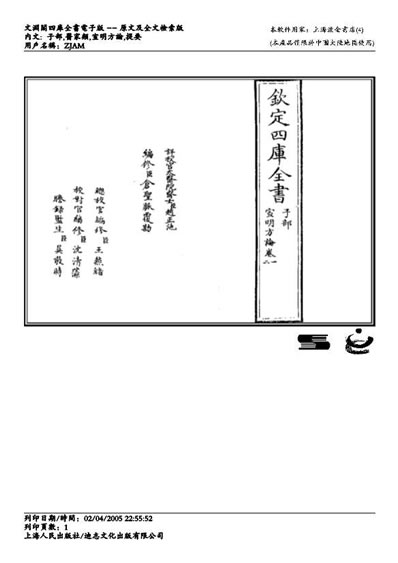 文淵閣四庫全書電子版 -- 原文及全文檢索版
內文: 子部,醫家類,宣明方論,提要
用户名稱: ZJAM
本軟件用家: 上海
(本產品僅限於中國大陸地區使用)
欽定四庫全書
子部
宣明方論卷一
編修臣倉聖脈覆勘
總校官編修臣王燕緒
校對官編修臣沈清藻
謄錄監生臣吳敬時
列印日期/時間: 02/04/2005 22:55:52
列印頁數: 1
上海人民出版社/迪志文化出版有限公司